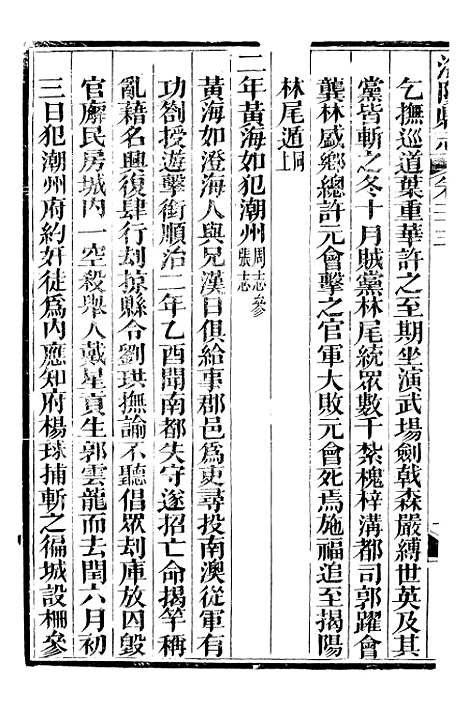 乞撫巡道葉重華許之至期坐演武場劍戟森嚴縛世英及其
黨皆斬之冬十月賊黨林尾統眾數千紮槐梓溝都司郭躍會
龔林盛鄉總許元會擊之官軍大敗元會死焉施福追至揭陽
林尾遁上同
二年黃海如犯潮州周志參張志
黃海如澄海人與兄漢目俱給事郡邑爲吏尋投南澳從軍有
功劄授遊擊銜順治二年乙酉聞南都失守遂招亡命揭竿稱
亂藉名興復肆行刦掠縣令劉珙撫諭不聽倡眾刦庫放囚毀
官廨民房城內一空殺舉人戴星貢生郭雲龍而去閏六月初
三日犯潮州府約奸徒爲內應知府楊球捕斬之徧城設柵參
陽縣志 卷十三